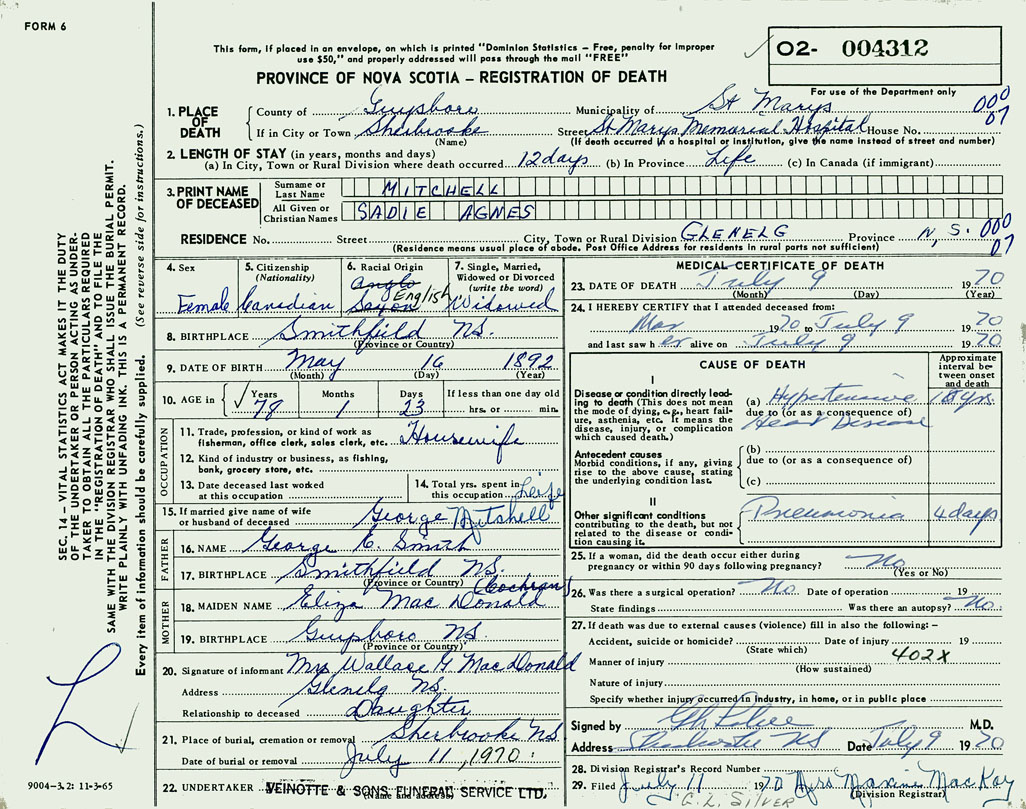 FORM 6
This form, if placed in an envelope, on which is printed "Dominion Statistics – Free, penalty for improper
use $50," and properly addressed will pass through the mail "FREE"
O2- 004312
PROVINCE OF NOVA SCOTIA – REGISTRATION OF DEATH
For use of the Department only
1. PLACE OF DEATH
County of Guysboro Municipality of St Marys 000
If in City or Town Sherbrooke Street St Marys Memorial Hospital House No. 07
(Name) (If death occurred in a hospital or institution, give the name instead of street and number)
2. LENGTH OF STAY (in years, months and days)
(a) In City, Town or Rural Division where death occurred 12 days (b) In Province Life (c) In Canada (if immigrant)
3. PRINT NAME OF DECEASED
Surname or Last Name MITCHELL
All Given or Christian Names SADIE AGNES
RESIDENCE No. Street City, Town or Rural Division GLENELG Province N.S. 000
(Residence means usual place of abode. Post Office Address for residents in rural parts not sufficient) 07
4. Sex
Female
5. Citizenship
(Nationality)
Canadian
6. Racial Origin
Anglo
Saxon English
7. Single, Married,
Widowed or Divorced
(write the word)
Widowed
8. BIRTHPLACE Smithfield NS.
(Province or Country)
9. DATE OF BIRTH May 16 1892
(Month) (Day) (Year)
10. AGE in
Years Months Days If less than one day old
78 1 23 hrs. or min.
OCCUPATION
11. Trade, profession, or kind of work as
fisherman, office clerk, sales clerk, etc. Housewife
12. Kind of industry or business, as fishing,
bank, grocery store, etc.
13. Date deceased last worked
at this occupation
14. Total yrs. spent in
this occupation
15. If married give name of wife
or husband of deceased George Mitchell
FATHER
16. NAME George E. Smith
17. BIRTHPLACE Smithfield NS.
(Province or Country)
MOTHER
(Cochran)
18. MAIDEN NAME Eliza Mac Donald
19. BIRTHPLACE Guysboro NS
(Province or Country)
20. Signature of informant Mrs Wallace G. MacDonald
Address Glenelg NS.
Relationship to deceased Daughter
21. Place of burial, cremation or removal Sherbrooke NS
Date of burial or removal July 11, 1970.
22. UNDERTAKER VEINOTTE & SONS FUNERAL SERVICE LTD.
(Name and address)
MEDICAL CERTIFICATE OF DEATH
23. DATE OF DEATH July 9 1970
(Month) (Day) (Year)
24. I HEREBY CERTIFY that I attended deceased from:
Mar 1970 to July 9 1970
and last saw her alive on July 9 1970
CAUSE OF DEATH
Approximate
interval be-
tween onset
and death
I
Disease or condition directly lead-
ing to death (This does not mean
the mode of dying, e.g., heart fail-
ure, asthenia, etc. It means the
disease, injury, or complication
which caused death.)
(a) Hypertensive
due to (or as a consequence of)
Heart Disease
Antecedent causes
Morbid conditions, if any, giving
rise to the above cause, stating
the underlying condition last.
(b)
due to (or as a consequence of)
(c)
II
Other significant conditions
contributing to the death, but not
related to the disease or condi-
tion causing it.
Pneumonia 4 days
25. If a woman, did the death occur either during
pregnancy or within 90 days following pregnancy? No
(Yes or No)
26. Was there a surgical operation? No Date of operation 19
State findings Was there an autopsy? No
27. If death was due to external causes (violence) fill in also the following: –
Accident, suicide or homicide? Date of injury 19
(State which) 402X
Manner of injury
(How sustained)
Nature of injury
Specify whether injury occurred in industry, in home, or in public place
Signed by M.D.
Address Sherbrooke NS Date July 9 1970
28. Division Registrar's Record Number
29. Filed July 11 1970 Mrs Maxine MacKay
(Division Registrar)
C. L. SILVER
SEC. 14 – VITAL STATISTICS ACT MAKES IT THE DUTY
OF THE UNDERTAKER OR PERSON ACTING AS UNDER-
TAKER TO OBTAIN ALL THE PARTICULARS REQUIRED
IN THE "REGISTRATION OF DEATH" AND TO FILE THE
SAME WITH THE DIVISION REGISTRAR WHO SHALL ISSUE THE BURIAL PERMIT.
WRITE PLAINLY WITH UNFADING INK. THIS IS A PERMANENT RECORD.
Every item of information should be carefully supplied. (See reverse side for instructions.)
9004-3.2: 11-3-65